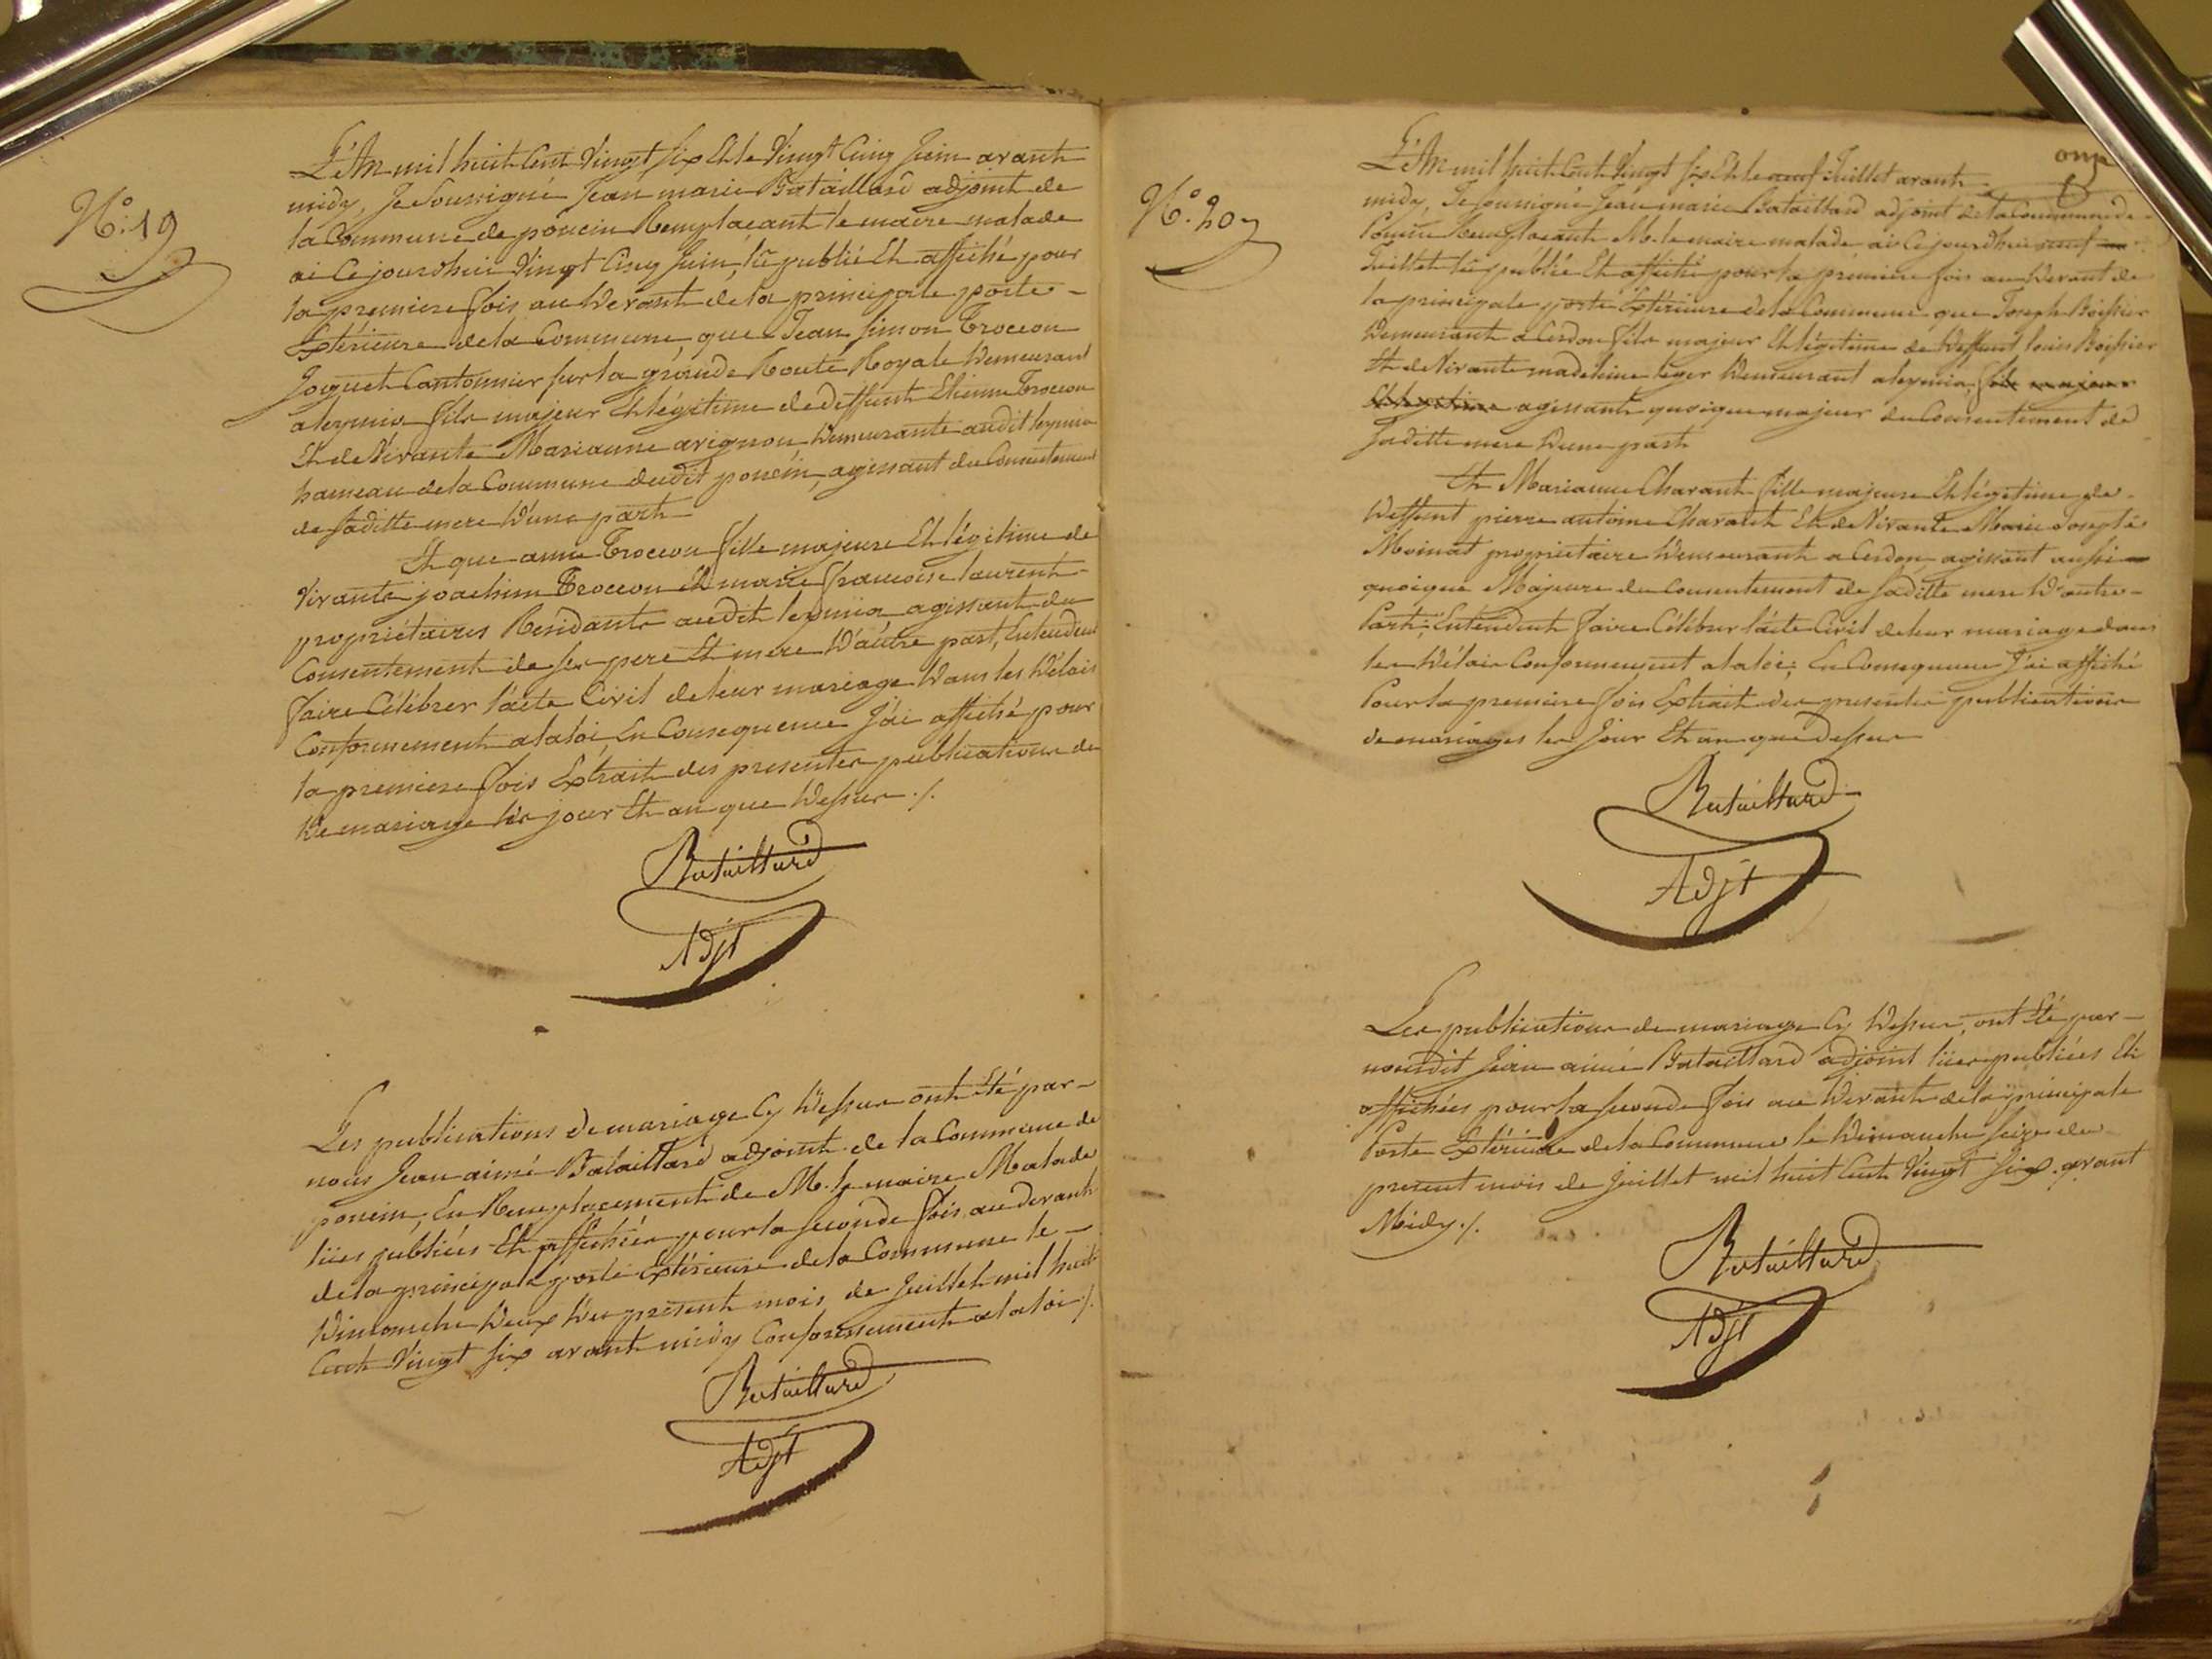 N.º 19
L'An mil huit Cent Vingt six Et le Vingt Cinq Juin avant
midy, Je Soussigné Jean marie Bataillard adjoint de
la Commune de poncin Remplaçant le maire malade
ai Cejourdhui Vingt Cinq Juin, lû publié Et affiché pour
la premiere fois au devant de la principale porte
Extérieure de la Commune, que Jean Simon Trocon
Joguet Cantonnier sur la grande Route Royale demeurant
a leymia fils majeur Et légitime de deffunt Etienne Trocon
Et de Vivante Marianne avignon demeurante audit leymia
hameau de la Commune dudit poncin, agissant du Consentement
de saditte mere d'une part
Et que anne Trocon fille majeure Et légitime de
Vivants joachim Trocon Et marie françoise laurent
propriétaires Residants audit leymia agissant du
Consentement de ses pere Et mere D'autre part, Entendent
faire Célébrer l'acte Civil de leur mariage dans les délais
Conformement a la loi, En Consequence J'ai affiché pour
la premiere fois Extrait des presentes publications de
de mariage les jour Et an que dessus ./.
Bataillard
Adjt
Les publications de mariage Cy dessus ont Eté par
nous Jean aimé Bataillard adjoint de la Commune de
poncin, En Remplacement de M. le maire Malade
lües publiées Et affichées pour la seconde fois au devant
de la principale porte Extérieure de la Commune le
dimanche deux du present mois de Juillet mil huit
Cent Vingt six avant midy Conformement a la loi ./.
Bataillard
Adjt
onze
N.º 20
L'An mil huit Cent Vingt six Et le neuf Juillet avant
midy, Je soussigné Jean marie Bataillard adjoint de la Commune de
Poncin Remplaçant M. le maire malade ai Cejourdhui neuf
Juillet lû publié Et affiché pour la premiere fois au devant de
la principale porte Extérieure de la Commune que Joseph Boissier
demeurant a Cerdon fils majeur Et légitime de deffunt louis Boissier
Et de Vivante madelaine leger demeurant a leymia, fils majeur
Et légitime agissant quoique majeur du Consentement de
saditte mere d'une part
Et Marianne Charant fille majeure Et légitime de
deffunt pierre antoine Charant Et de Vivante Marie Josephe
Moinat propriétaire demeurant a Cerdon, agissant aussi
quoique Majeure du Consentement de saditte mere d'autre
Part; Entendent faire Célébrer l'acte Civil de leur mariage dans
les délais Conformement a la loi; En Consequence J'ai affiché
Pour la premiere fois Extrait des presentes publications
de mariages les Jour Et an que dessus
Bataillard
Adjt
Les publications de mariage Cy dessus, ont Eté par
nousdit Jean aimé Bataillard adjoint lües publiées Et
affichées pour la seconde fois au devant de la principale
Porte Extérieure de la Commune le dimanche seize du
present mois de Juillet mil huit Cent Vingt six avant
Midy ./.
Bataillard
Adjt